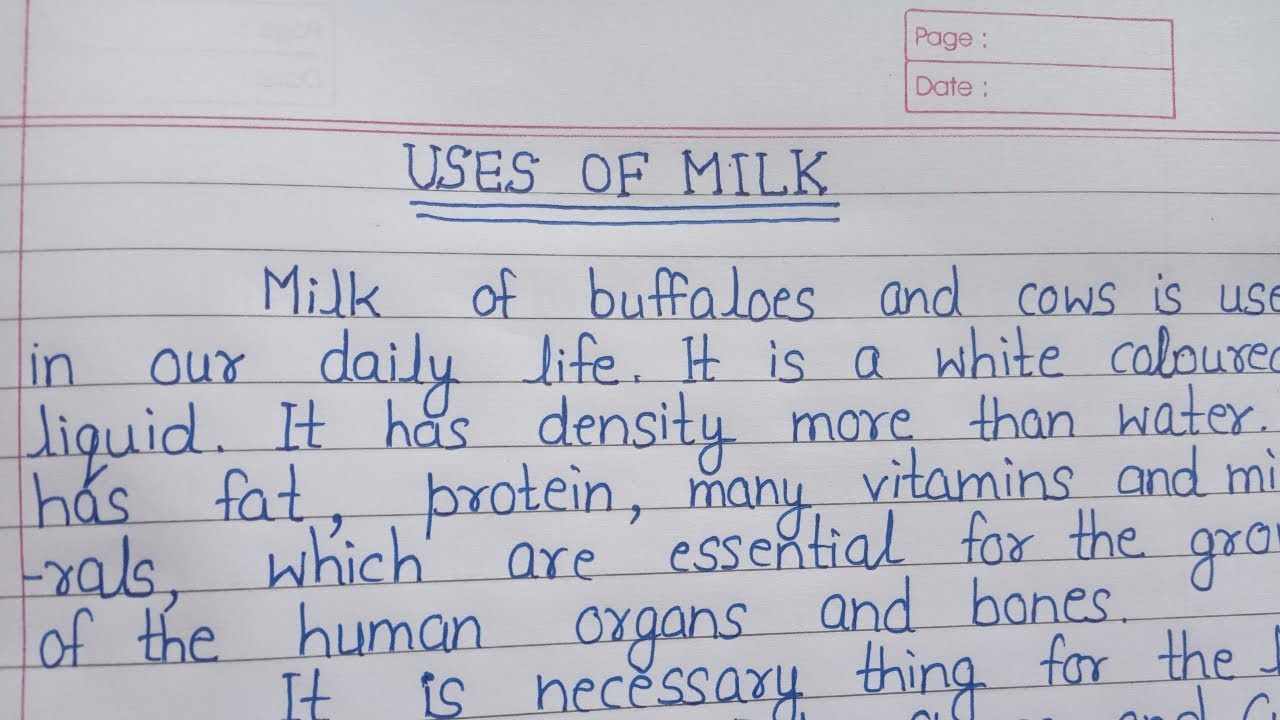 Page :
Date :
USES OF MILK
Milk of buffaloes and cows is use
in our daily life. It is a white coloured
liquid. It has density more than water.
has fat, protein, many vitamins and mi
-rals, which are essential for the gro
of the human organs and bones.
It is necessary thing for the
and